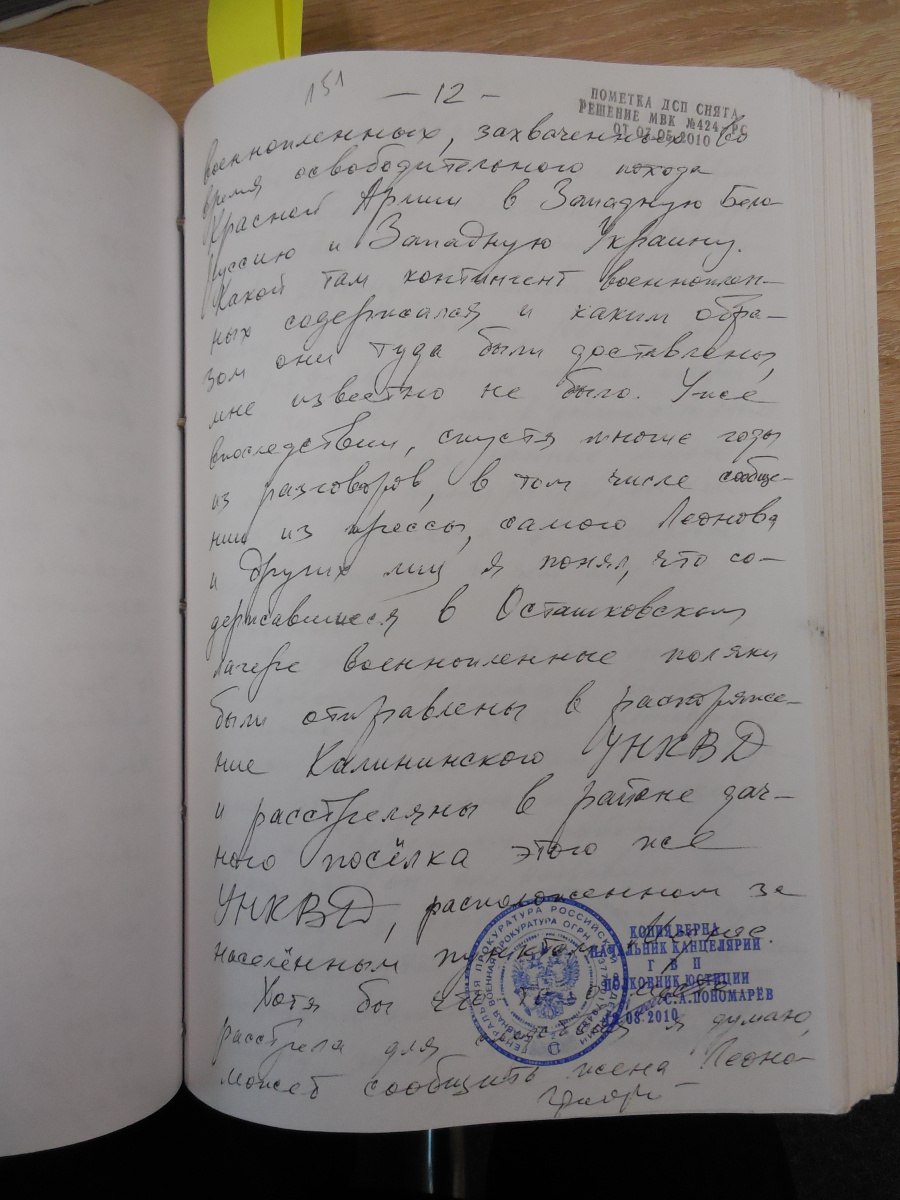 151
— 12 —
ПОМЕТКА ДСП СНЯТА
РЕШЕНИЕ МВК №424-РС
ОТ 07.05.2010
военнопленных, захваченных во
время освободительного похода
Красной Армии в Западную Бело-
руссию и Западную Украину.
Какой там контингент военноплен-
ных содержался и каким обра-
зом они туда были доставлены,
мне известно не было. Уже
впоследствии, спустя многие годы
из разговоров, в том числе сообще-
нии из прессы, самого Леонова
и других лиц я понял, что со-
державшиеся в Осташковском
лагере военнопленные поляки
были отправлены в распоряже-
ние Калининского УНКВД
и расстреляны в районе дач-
ного посёлка этого же
УНКВД, расположенном за
населённым пунктом
Хотя бы что
расстрела для я думаю,
может сообщить жена Леоно-
КОПИЯ ВЕРНА
НАЧАЛЬНИК КАНЦЕЛЯРИИ
Г В П
ПОЛКОВНИК ЮСТИЦИИ
С.А.ПОНОМАРЁВ
08.2010